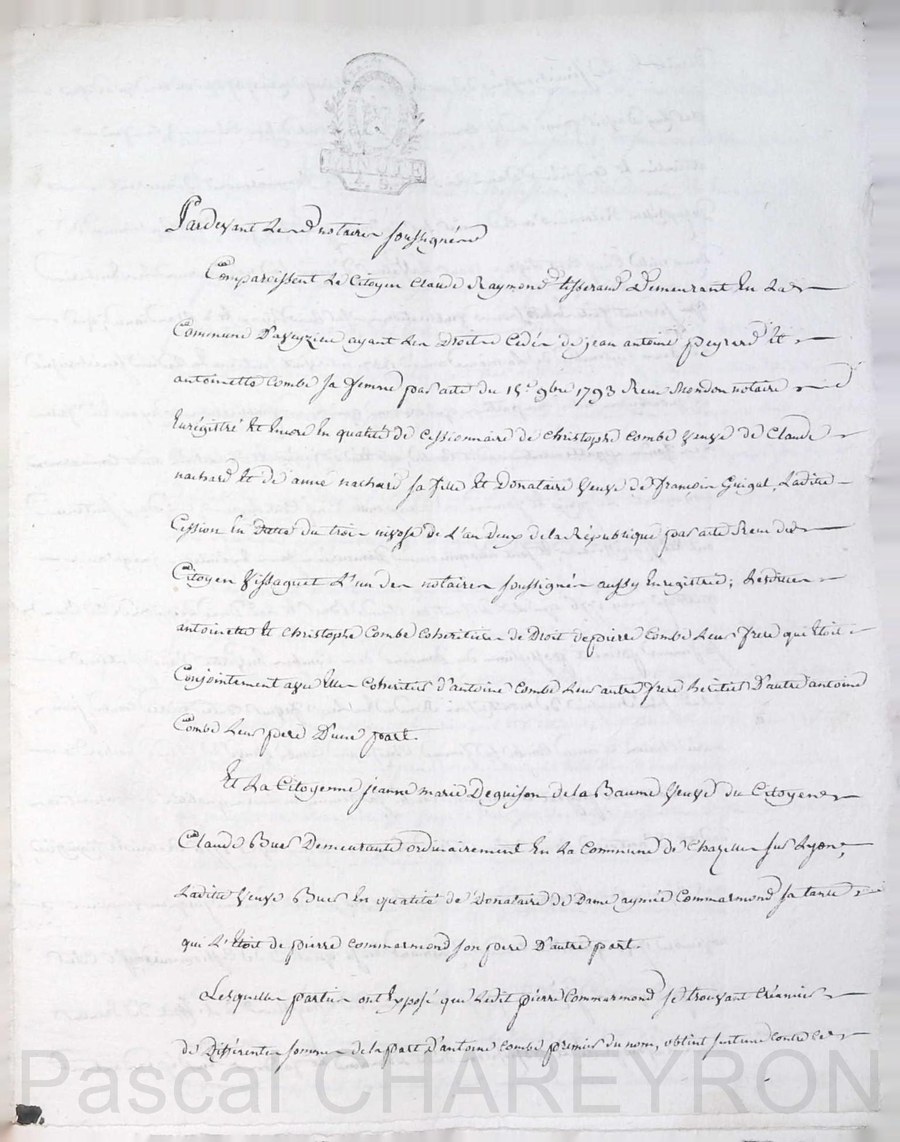 Pardevant les notaires soussignés
Comparoissent le Citoyen Claude Raymond tisserand Demeurant En la
Commune D'aveyzieu ayant les Droits Cédés de jean antoine peyrard et
antoinette Combe sa femme par acte du 15e. 9bre 1793 Reçu Mondon notaire
Enregistré Et Encore En qualité de Cessionnaire de Christophe Combe Veuve de Claude
nachard Et de anne nachard sa fille Et Donataire Veuve de françois Guigal, Ladite
Cession En Datte du trois nivose de L'an Deux de la République par acte Reçu du
Citoyen Vissaguet L'un des notaires soussignés aussy Enregistrée; Lesdites
antoinette Et Christophe Combe Coheritieres de Droit de pierre Combe Leur frere qui Etoit
Conjointement avec Elles Coheritier d'antoine Combe Leur autre frere heritier D'autre antoine
Combe Leur pere D'une part.
Et La Citoyenne jeanne marie Deguison de la Baume Veuve du Citoyen
Claude Buer Demeurante ordinairement En La Commune de Chazelles sur Lyon,
Ladite Veuve Buer En qualité de Donataire de Dame aymée Commarmond sa tante
qui L'Etoit de pierre Commarmond son pere D'autre part.
Lesquelles parties ont Exposé que Ledit pierre Commarmond se trouvant Créancier
de Differentes sommes de la part D'antoine Combe premier du nom, obtint sentence contre le
Pascal CHAREYRON